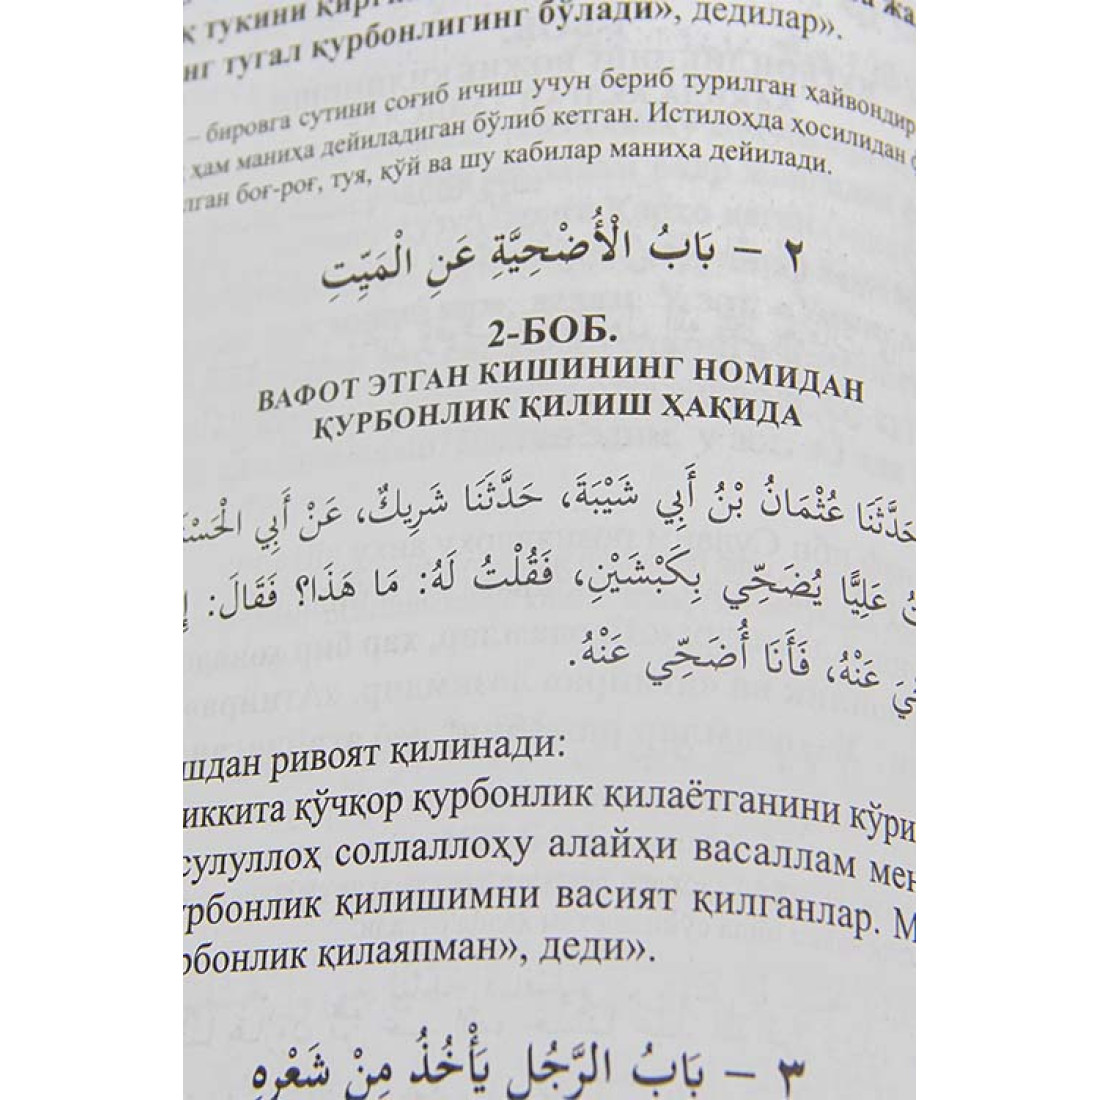 тукини
нг тугал қурбонлигинг бўлади», дедилар».
– бировга сутини соғиб ичиш учун бериб турилган ҳайвондир
ҳам маниҳа дейиладиган бўлиб кетган. Истилоҳда ҳосилидан
лган боғ-роғ, туя, қўй ва шу кабилар маниҳа дейилади.
٢ – بَابُ الْأُضْحِيَّةِ عَنِ الْمَيِّتِ
2-БОБ.
ВАФОТ ЭТГАН КИШИНИНГ НОМИДАН
ҚУРБОНЛИК ҚИЛИШ ҲАҚИДА
حَدَّثَنَا عُثْمَانُ بْنُ أَبِي شَيْبَةَ، حَدَّثَنَا شَرِيكٌ، عَنْ أَبِي الْحَسْنَ
عَلِيًّا يُضَحِّي بِكَبْشَيْنِ، فَقُلْتُ لَهُ: مَا هَذَا؟ فَقَالَ:
عَنْهُ، فَأَنَا أُضَحِّي عَنْهُ.
шдан ривоят қилинади:
иккита қўчқор қурбонлик қилаётганини кўри
сулуллоҳ соллаллоҳу алайҳи васаллам мен
рбонлик қилишимни васият қилганлар. М
рбонлик қилаяпман», деди».
٣ – بَابُ الرَّجُلِ يَأْخُذُ مِنْ شَعْرِهِ